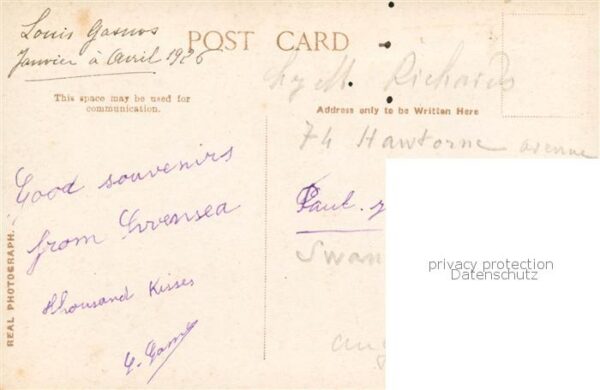 Louis
Janvier à Avril 1926
POST CARD
This space may be used for
communication.
Address only to be Written Here
Richards
74 Hawtorne avenue
Good souvenirs
from
thousand Kisses
Paul
Swan
REAL PHOTOGRAPH.
privacy protection
Datenschutz